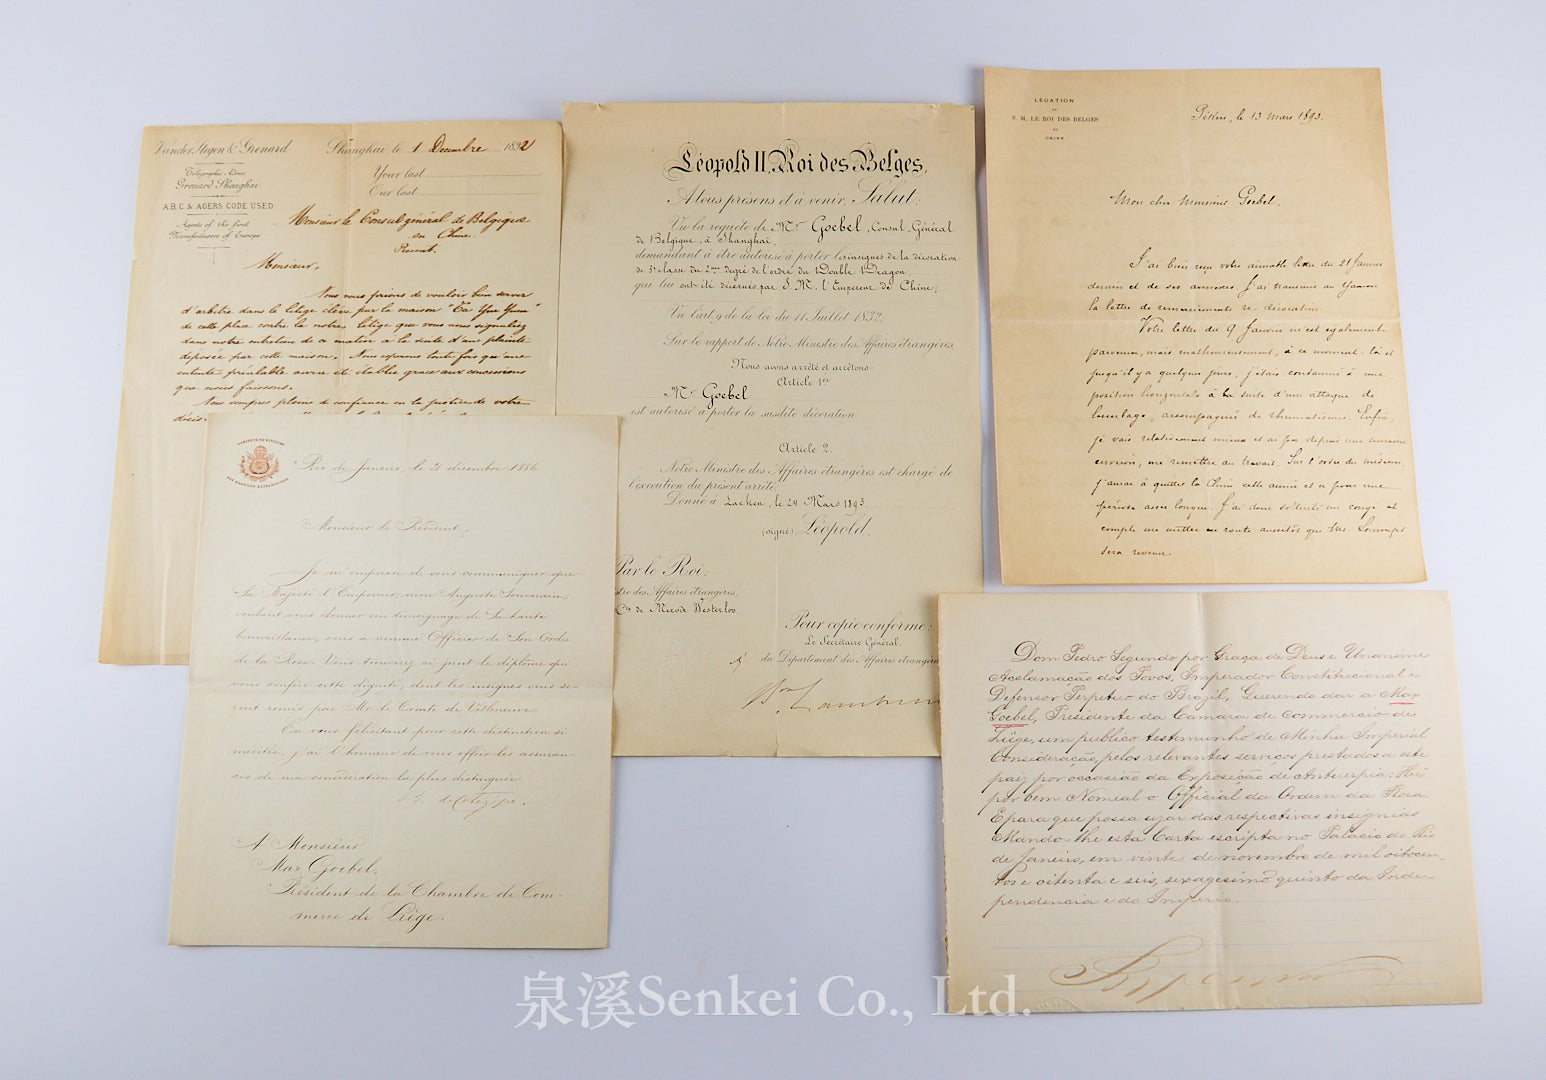 Vander Stegen & Grenard
Telegraphic Adress
Grenard Shanghai.
A.B.C. & AGERS CODE USED
Agents of the first
Manufacturers of Europe
Shanghai, le 1 Decembre 1892
Your last
Our last
Monsieur le Consul général de Belgique
en Chine.
Present.
Monsieur,
Nous vous prions de vouloir bien servir
d'arbitre dans le litige élevé par la maison
de cette place contre la notre, litige que vous nous signaliez
dans notre entretien de ce matin à la suite d'une plainte
déposée par cette maison. Nous espérons toute fois qu'une
entente préalable aurra été établie grace aux concessions
que nous faisons.
Nous sommes pleins de confiance en la justice de votre
décis
Léopold II, Roi des Belges,
A tous présens et à venir, Salut:
Vu la requête de Mr. Goebel, Consul Général
de Belgique, à Shanghai,
demandant à être autorisé à porter les insignes de la décoration
de 3e classe du 2me degré de l'ordre du Double Dragon,
qui lui ont été décernés par S. M. l'Empereur de Chine;
Vu l'art. 9 de la loi du 11 Juillet 1832;
Sur le rapport de Notre Ministre des Affaires étrangères,
Nous avons arrêté et arrêtons:
Article 1er
Mr. Goebel
est autorisé à porter la susdite décoration.
Article 2.
Notre Ministre des Affaires étrangères est chargé de
l'exécution du présent arrêté.
Donné à Laeken, le 24 Mars 1893
(signé) Léopold.
Par le Roi:
stre des Affaires étrangères,
Cte de Merode Westerloo.
Pour copie conforme:
Le Secrétaire Général
du Département des Affaires étrangère
LÉGATION
DE
S. M. LE ROI DES BELGES
EN
CHINE
Pékin, le 13 mars 1893.
Mon cher Monsieur Goebel,
J'ai bien reçu votre aimable lettre du 21 Janvier
dernier et de ses annexes. J'ai transmis au Yamen
la lettre de remerciments re. décoration.
Votre lettre du 9 Janvier m'est également
parvenue, mais malheureusement, à ce moment-là et
jusqu'il y a quelques jours, j'étais condamné à une
position horizontale à la suite d'une attaque de
lumbago, accompagnée de rhumatisme. Enfin,
je vais relativement mieux et ai pu depuis une semaine
environ, me remettre au travail. Sur l'ordre du médecin,
j'aurai à quitter la Chine cette année et ce pour une
période assez longue. J'ai donc sollicité un congé et
compte me mettre en route aussitôt que Mr.
sera revenu.
CABINETE DO MINISTRO
DOS NEGOCIOS ESTRANGEIROS
Rio de Janeiro, le 21 décembre 1886.
Monsieur le Président,
Je m'empresse de vous communiquer que
Sa Majesté l'Empereur, mon Auguste Souverain,
voulant vous donner un témoignage de Sa haute
bienveillance, vous a nommé Officier de Son Ordre
de la Rose. Vous trouverez ci-joint le diplôme qui
vous confère cette dignité, dont les insignes vous se-
ront remis par Mr. le Comte de Villeneuve.
En vous félicitant pour cette distinction si
méritée, j'ai l'honneur de vous offrir les assuran-
ces de ma considération la plus distinguée.
de Cotegipe.
A Monsieur
Max Goebel,
Président de la Chambre de Com-
merce de Liège.
Dom Pedro Segundo por Graça de Deus e Unanime
Acclamação dos Povos, Imperador Constitucional e
Defensor Perpetuo do Brazil, Querendo dar a Max
Goebel, Presidente da Camara de Commercio de
Liège, um publico testemunho de Minha Imperial
Consideração, pelos relevantes serviços prestados a este
paiz por occasião da Exposição de Antuerpia: Hei
por bem Nomeal-o Official da Ordem da Rosa.
E para que possa uzar das respectivas insignias
Mando-lhe esta Carta escripta no Palacio do Rio
de Janeiro, em vinte de novembro de mil oitocen-
tos e oitenta e seis, sexagesimo quinto da Inde-
pendencia e do Imperio.
泉溪Senkei Co., Ltd.